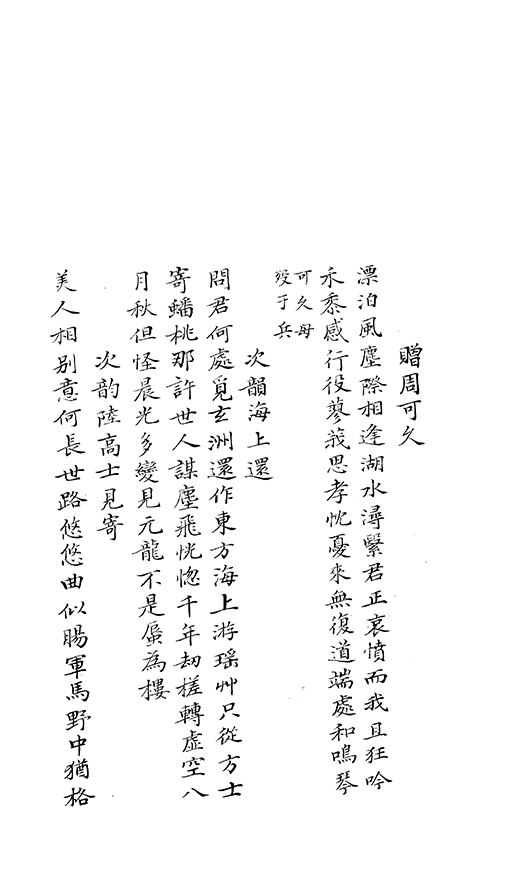 贈周可久
漂泊風塵際相逢湖水潯繄君正哀憤而我且狂吟
禾黍感行役蓼莪思孝忱憂來無復道端處和鳴琴
可久母
歿于兵
次韻海上還
問君何處覓玄洲還作東方海上游瑶艸只從方士
寄蟠桃那許世人謀塵飛恍惚千年刼槎轉虛空八
月秋但怪晨光多變見元龍不是蜃為樓
次韵陸高士見寄
美人相别意何長世路悠悠曲似腸軍馬野中猶格